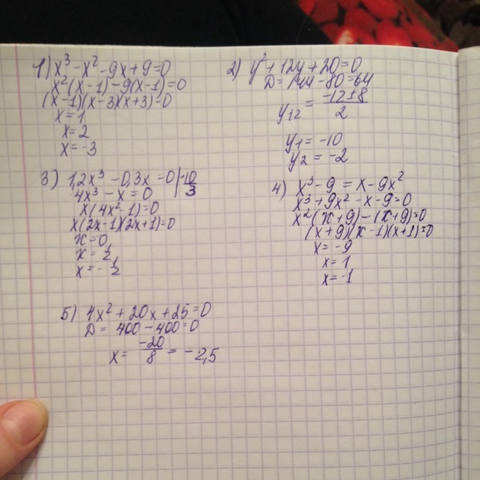 1) x³ - x² - 9x + 9 = 0
x²(x-1) - 9(x-1) = 0
(x-1)(x-3)(x+3) = 0
x = 1
x = 2
x = -3
2) y² + 12y + 20 = 0
D = 144 - 80 = 64
y12 = -12±8 / 2
y1 = -10
y2 = -2
3) 1,2x³ - 0,3x = 0 | · 10/3
4x³ - x = 0
x(4x² - 1) = 0
x(2x-1)(2x+1) = 0
x = 0
x = 1/2
x = - 1/2
4) x³ - 9 = x - 9x²
x³ + 9x² - x - 9 = 0
x²(x+9) - (x+9) = 0
(x+9)(x-1)(x+1) = 0
x = -9
x = 1
x = -1
5) 4x² + 20x + 25 = 0
D = 400 - 400 = 0
x = -20/8 = -2,5